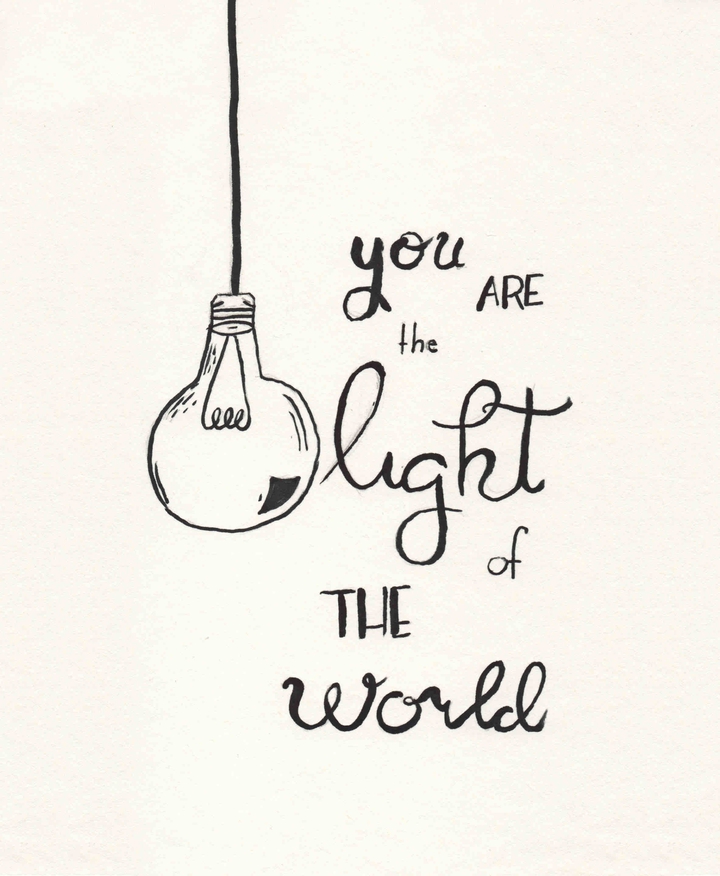 you
ARE
the
light
of
THE
world